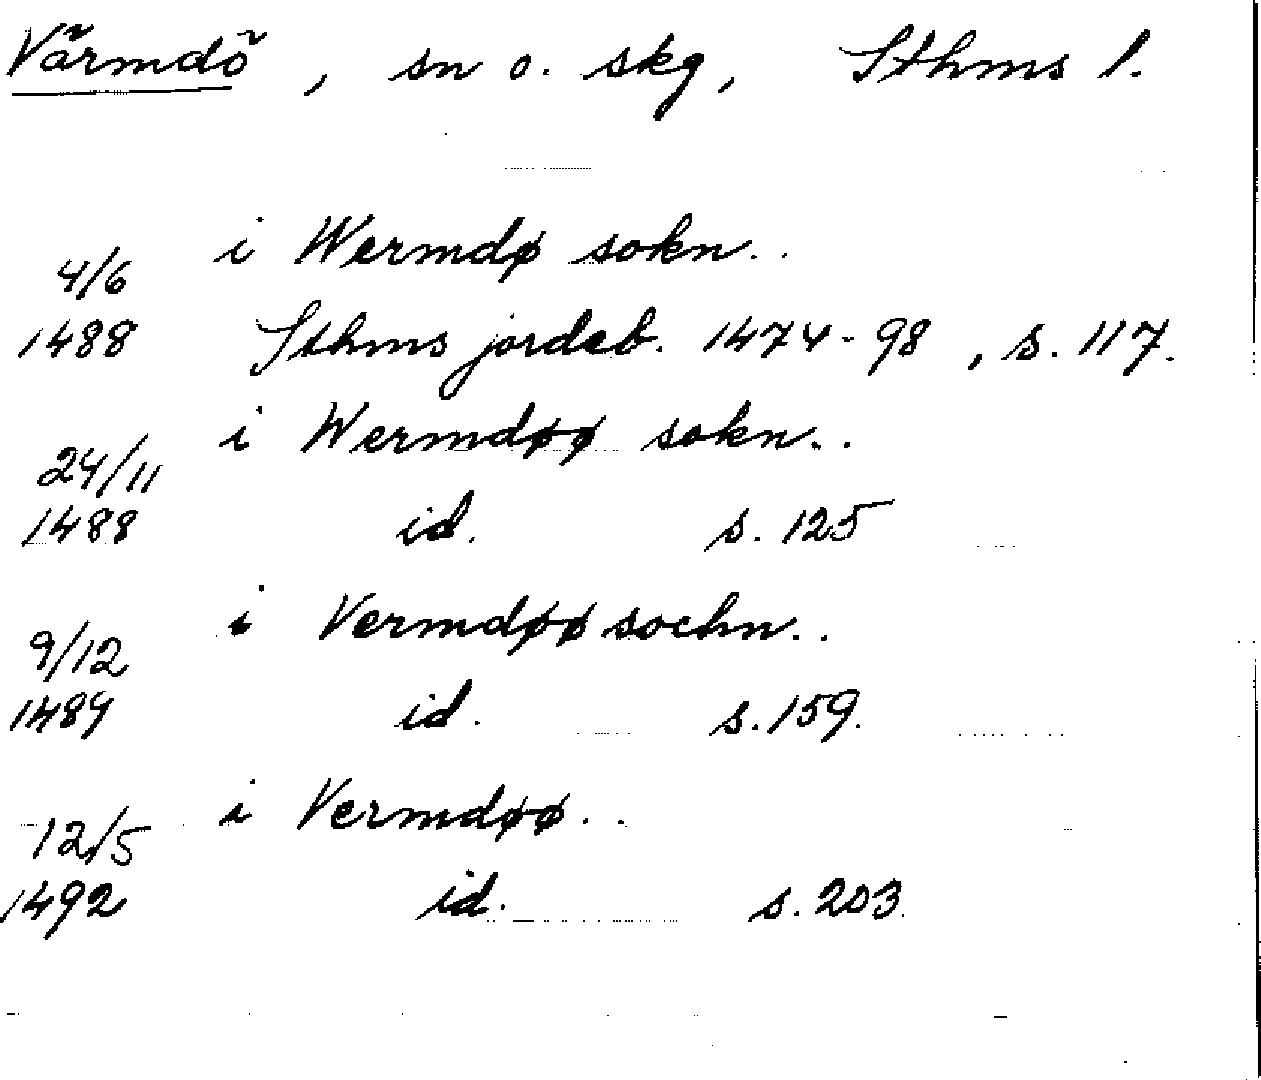 Värmdö, sn o. skg, Sthms l.
i Wermdø sokn..
4/6
1488 Sthms jordeb. 1474-98, s. 117.
i Wermdøø sokn..
24/11
1488 id. s. 125
i Vermdøø sochn..
9/12
1489 id. s. 159.
i Vermdøø..
12/5
1492 id. s. 203.